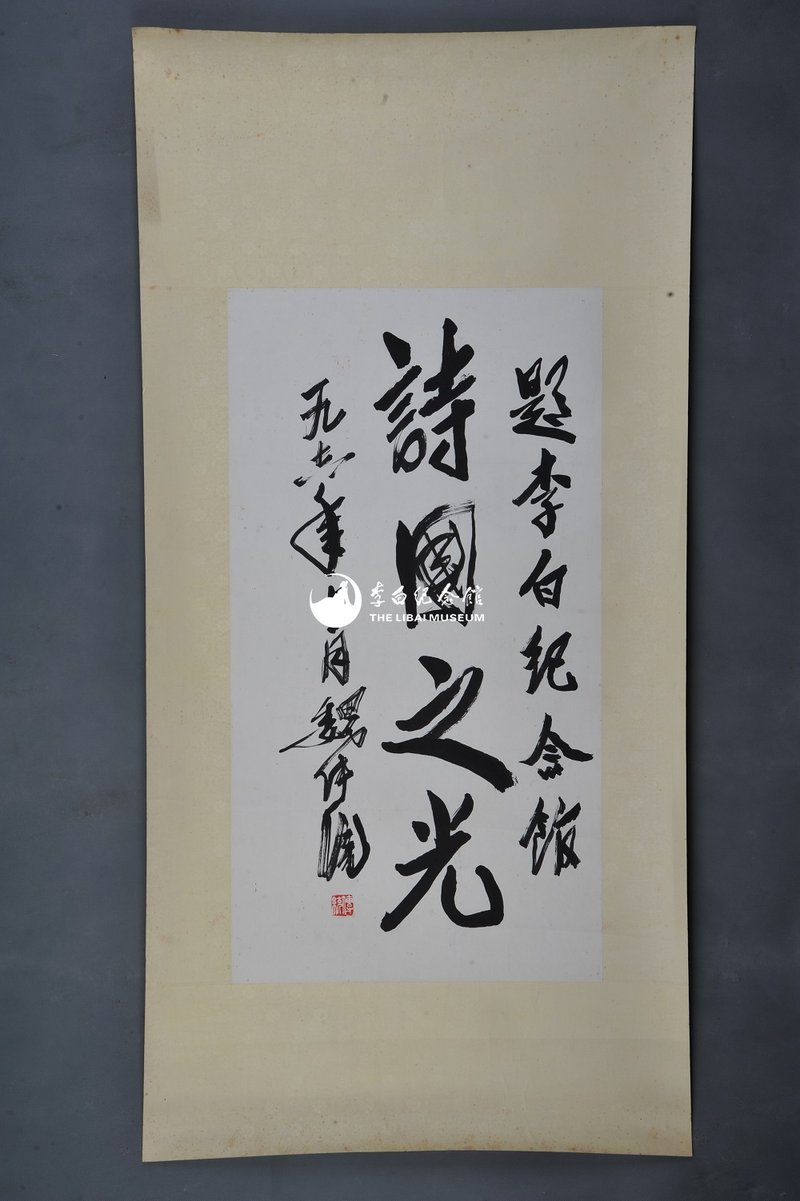 題李白纪念馆
詩國之光
一九八六年 月魏传统
李白纪念館
THE LIBAI MUSEUM